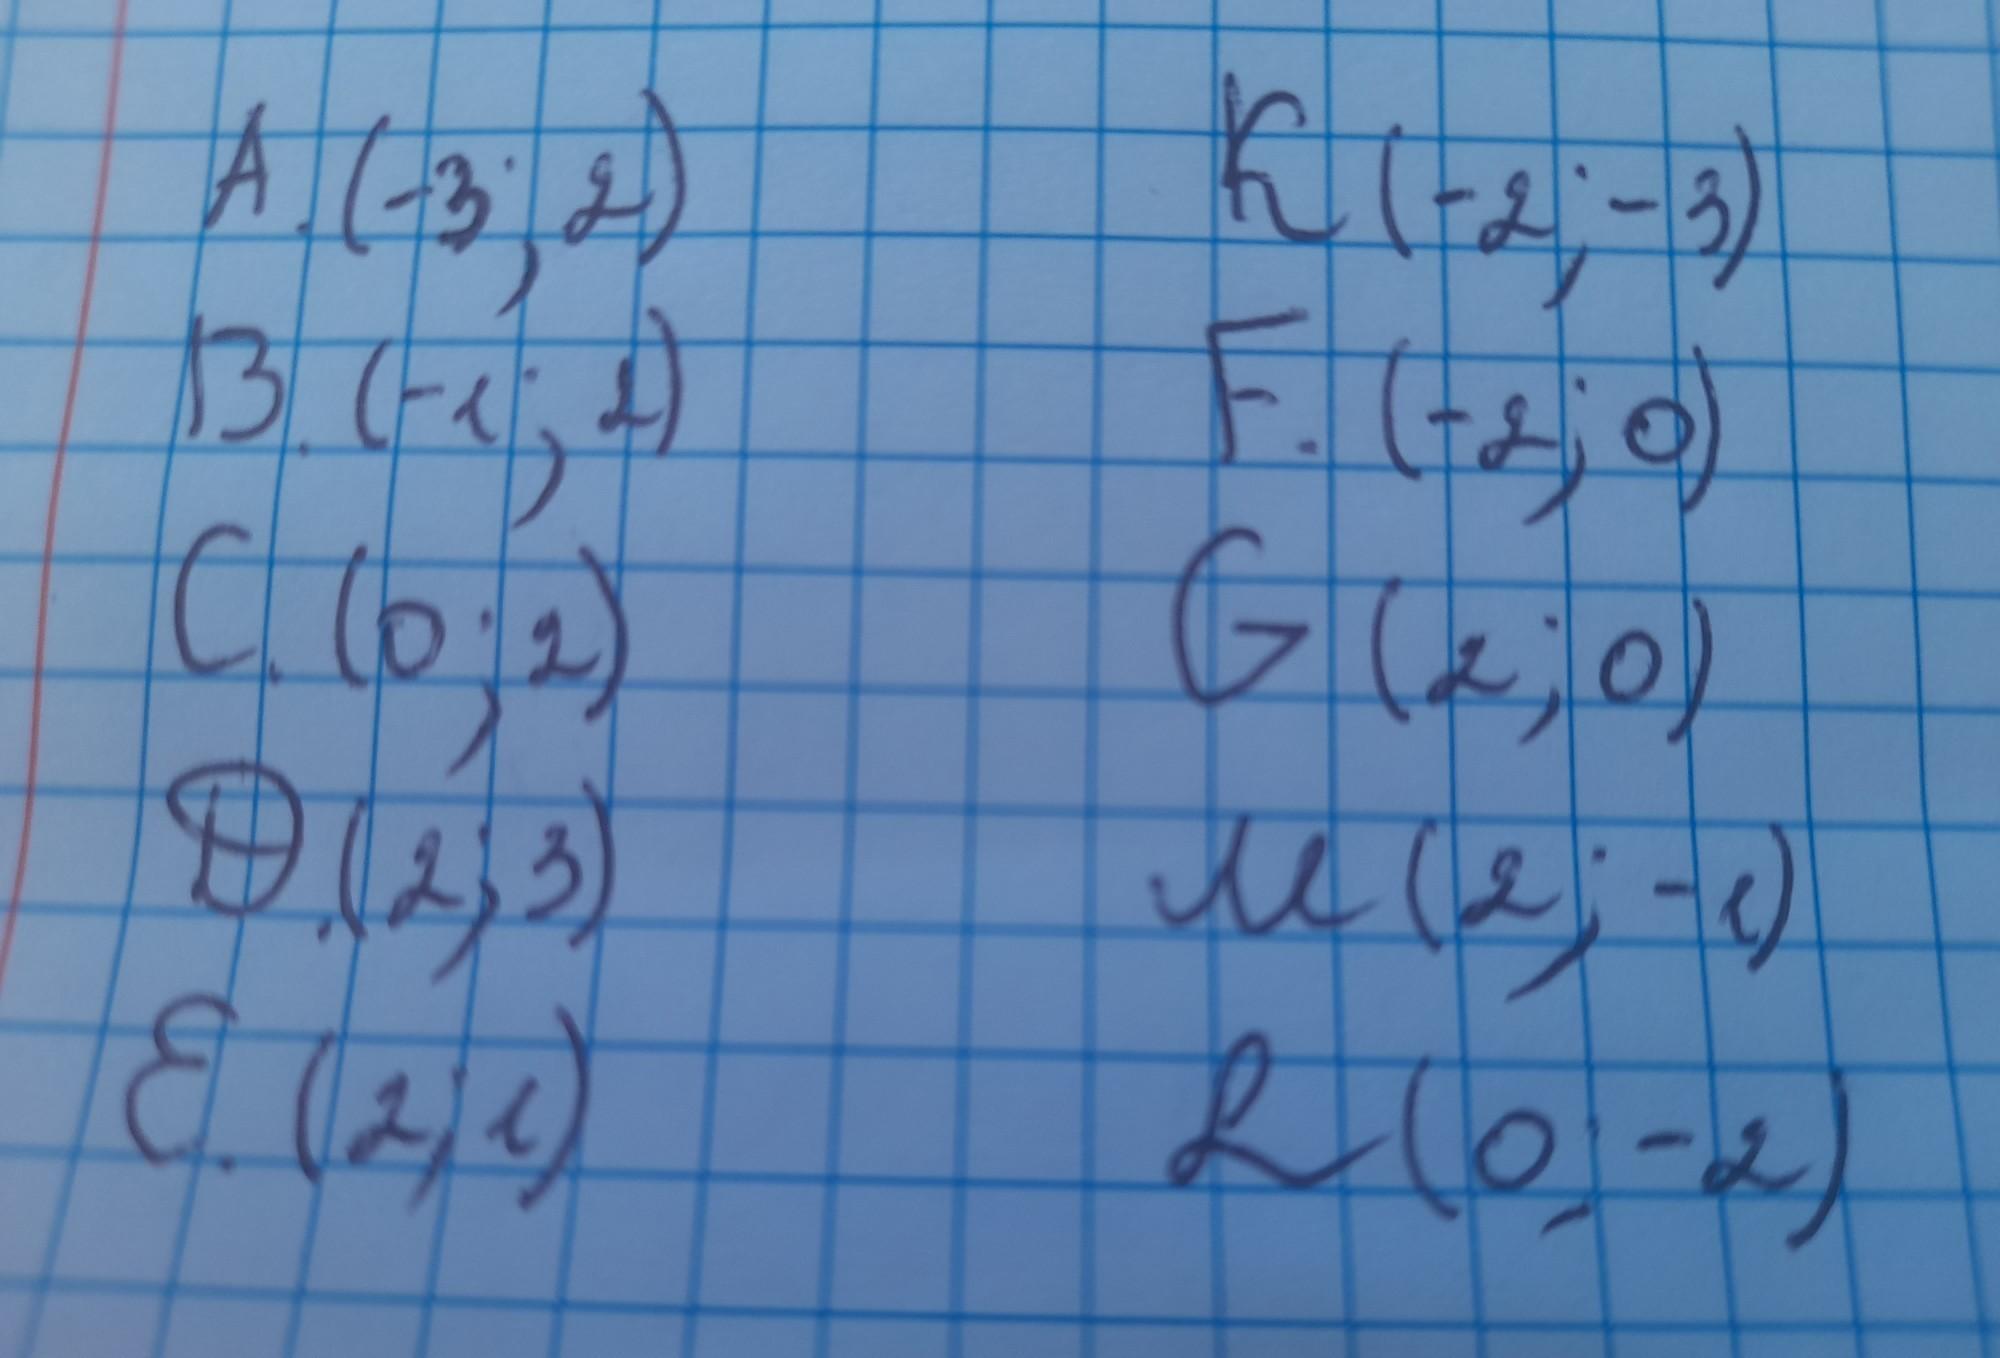 A. (-3; 2)
B. (-1; 2)
C. (0; 2)
D. (2; 3)
E. (2; 1)
K (-2; -3)
F. (-2; 0)
G (2; 0)
M (2; -1)
L (0; -2)